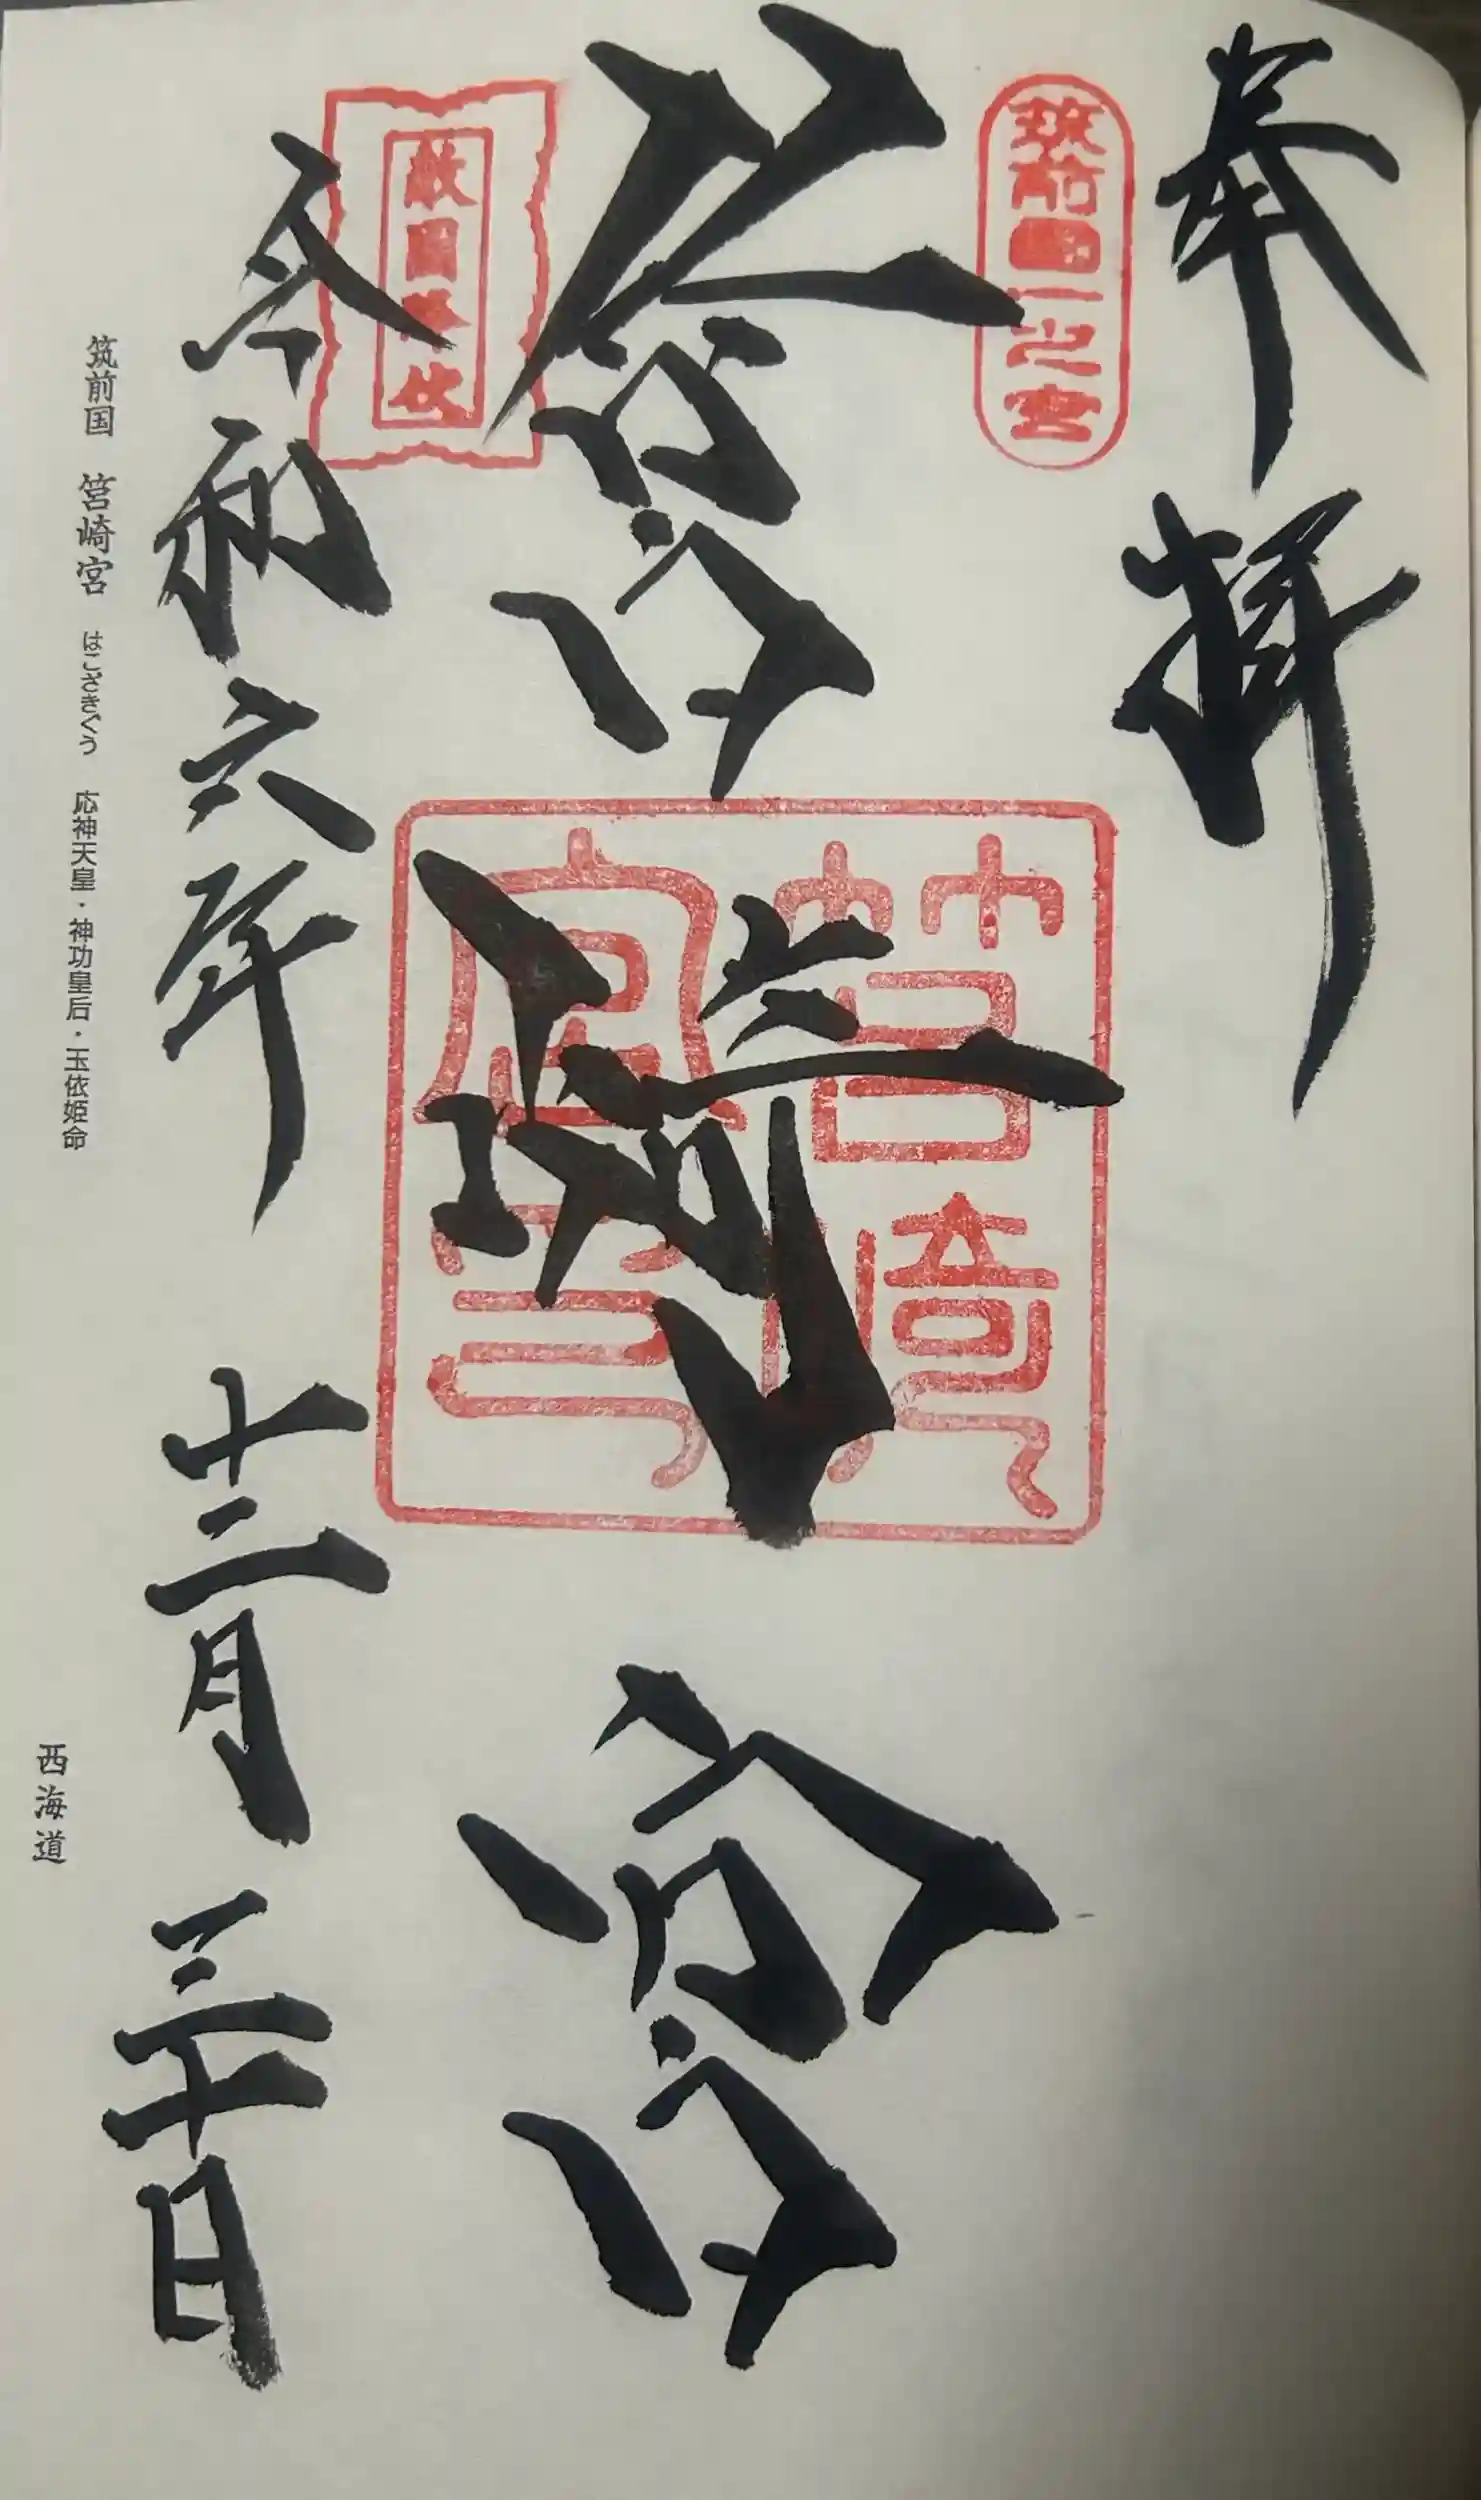 奉拝
筑前國一之宮
筥崎宮
筥崎宮印
敵国降伏
令和六年 十二月 三十日
筑前国 筥崎宮 はこざきぐう 応神天皇・神功皇后・玉依姫命
西海道